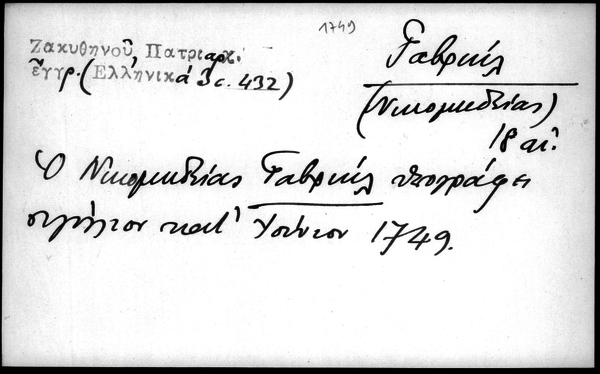 1749
Ζακυθηνοῦ, Πατριαρχ.
ἔγγρ. (Ἑλληνικά 3 σ. 432)
Γαβριήλ
(Νικομηδείας)
18 αἰ.
Ὁ Νικομηδείας Γαβριήλ ὑπογράφει
σιγίλλιον κατ' Ἰούνιον 1749.